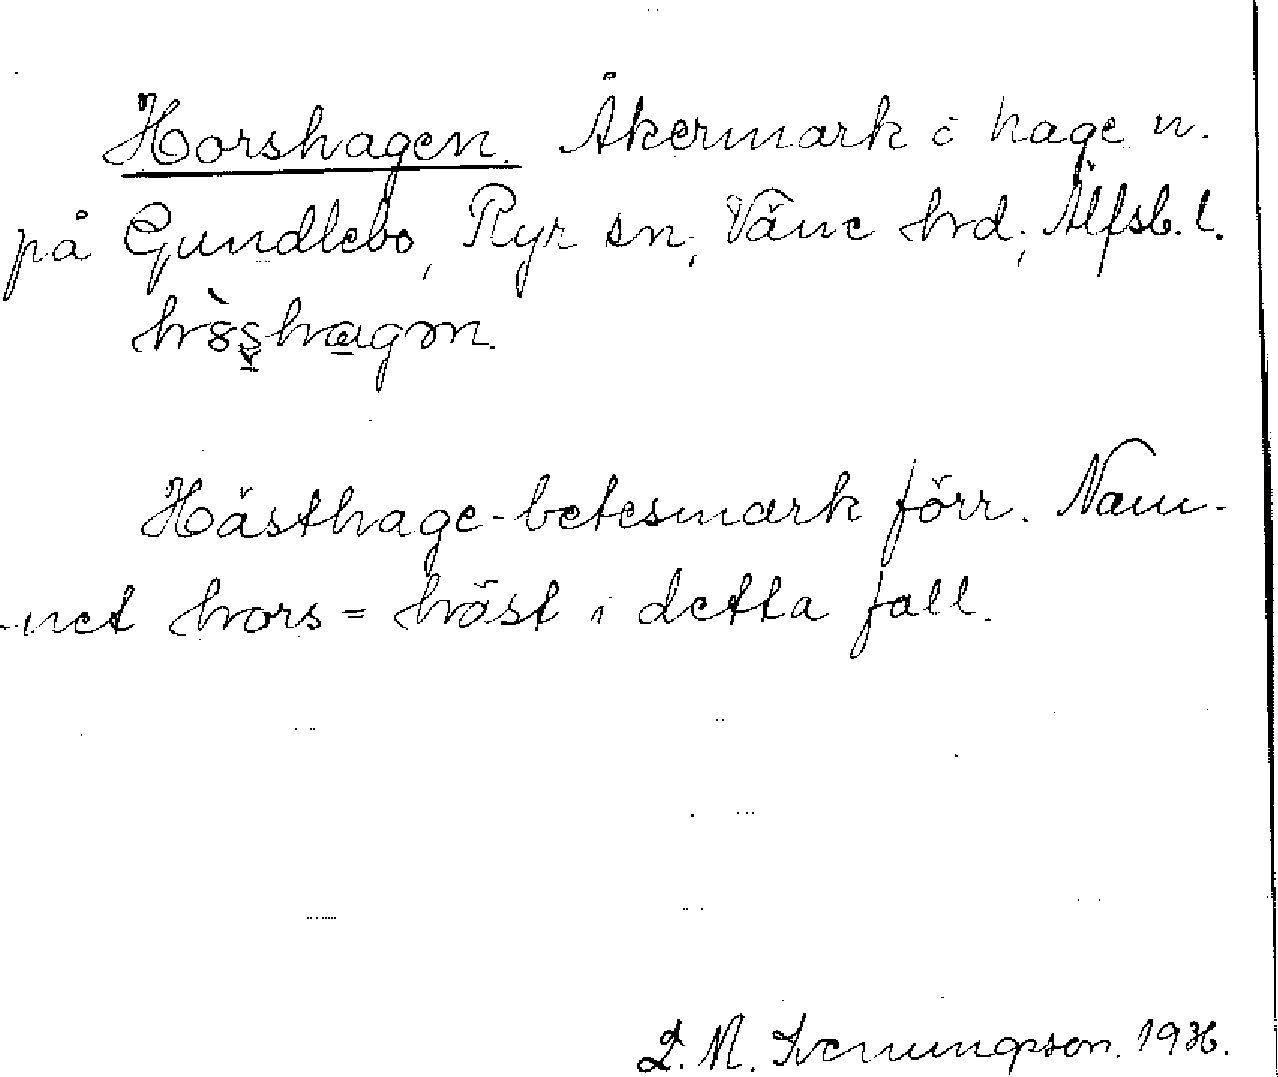 Horshagen. Åkermark i hage n.
på Gundlebo, Ryr sn, Väne hrd, Älfsb. l.
Hästhage-betesmark förr. Nam-
net hors = häst i detta fall.
L. M. Svenungsson. 1936.